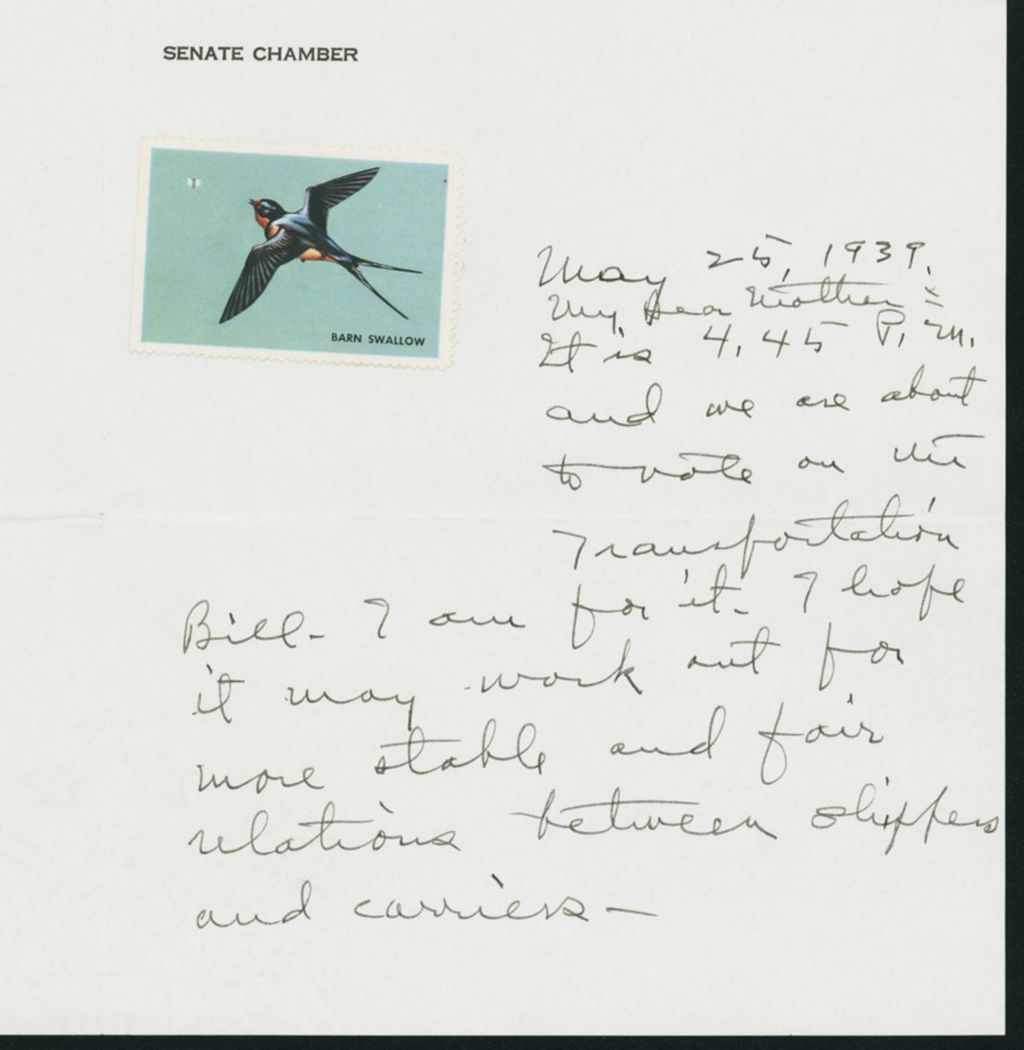 SENATE CHAMBER
BARN SWALLOW
May 25, 1939.
My Dear Mother :-
It is 4.45 P.M.
and we are about
to vote on the
Transportation
Bill - I am for it. I hope
it may work out for
more stable and fair
relations between shippers
and carriers -